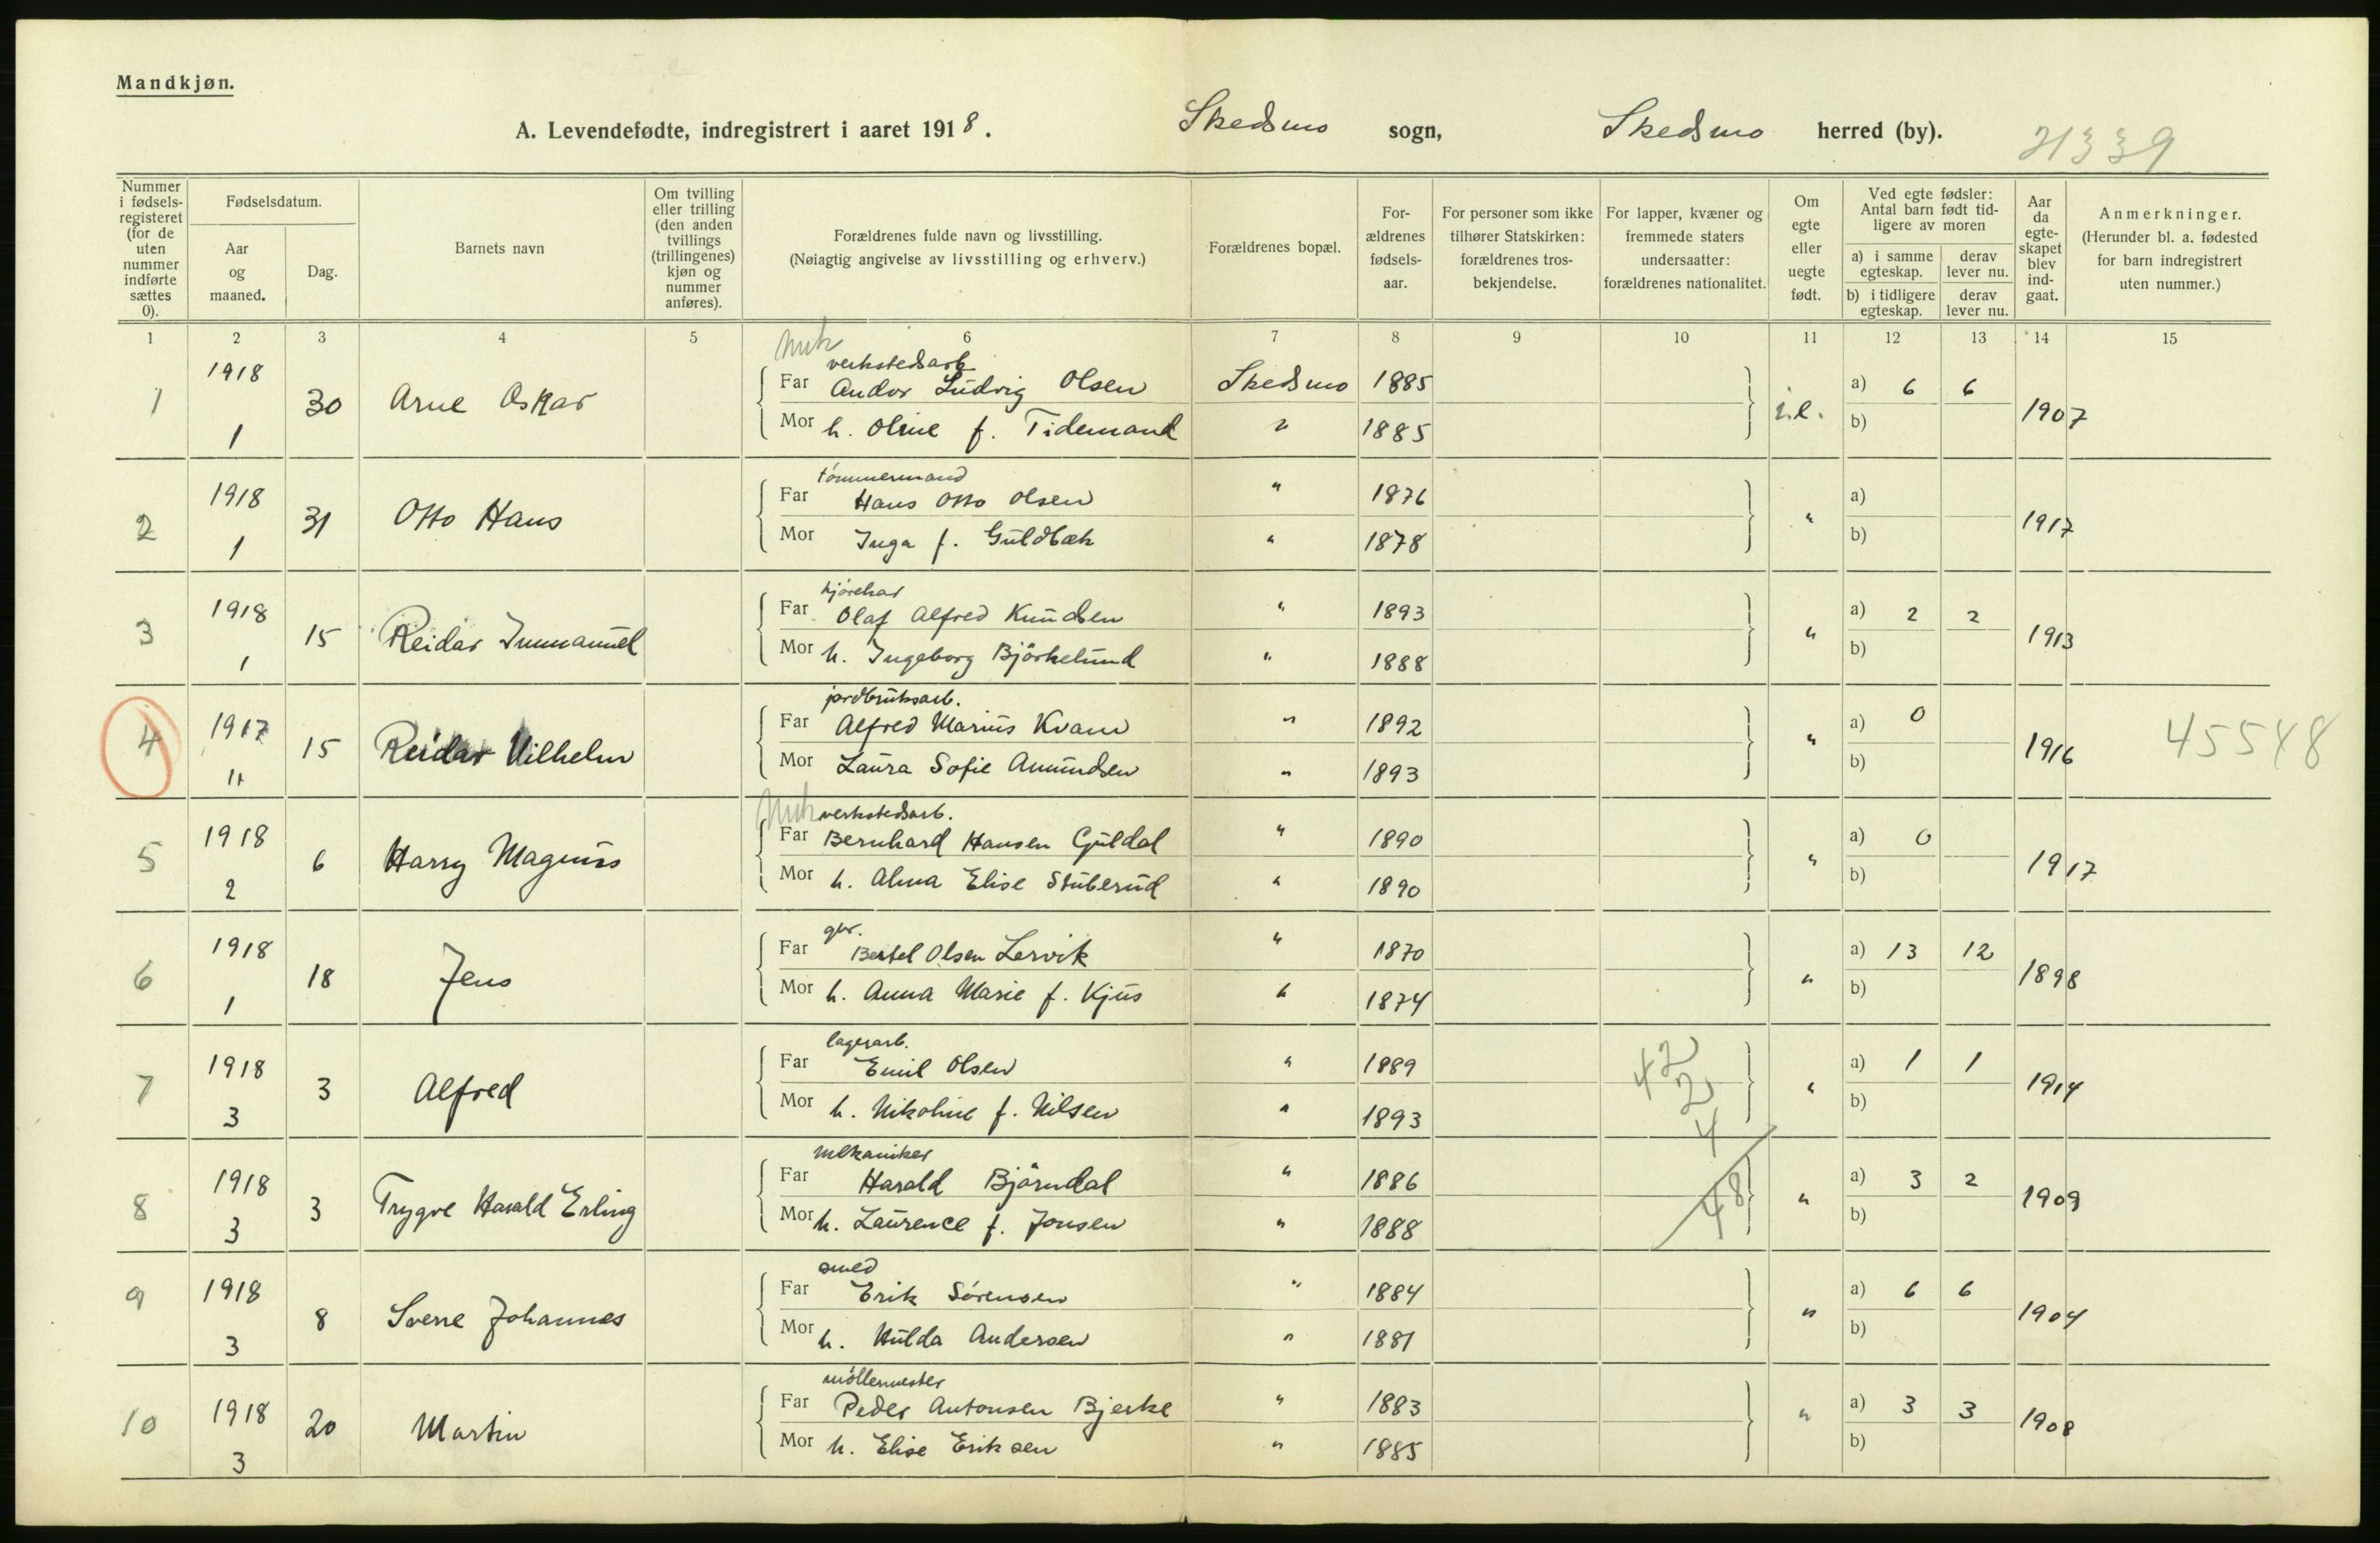 Mandkjøn.
A. Levendefødte, indregistrert i aaret 1918. Skedsmo sogn, Skedsmo herred (by). 21339
Nummer i fødsels-registeret (for de uten nummer indførte sættes 0).
Fødselsdatum.
Aar og maaned.
Dag.
Barnets navn
Om tvilling eller trilling (den anden tvillings (trillingenes) kjøn og nummer anføres).
Forældrenes fulde navn og livsstilling.
(Nøiagtig angivelse av livsstilling og erhverv.)
Forældrenes bopæl.
For-ældrenes fødsels-aar.
For personer som ikke tilhører Statskirken: forældrenes tros-bekjendelse.
For lapper, kvæner og fremmede staters undersaatter: forældrenes nationalitet.
Om egte eller uegte født.
Ved egte fødsler: Antal barn født tid-ligere av moren
a) i samme egteskap. derav lever nu.
b) i tidligere egteskap. derav lever nu.
Aar da egte-skapet blev ind-gaat.
Anmerkninger.
(Herunder bl. a. fødested for barn indregistrert uten nummer.)
1 2 3 4 5 6 7 8 9 10 11 12 13 14 15
verkstedsarb
1 1918 1 30 Arne Oskar Far Andor Ludvig Olsen Skedsmo 1885 a) 6 6 1907
Mor h. Oline f. Tidemand " 1885 b)
tömmermand
2 1918 1 31 Otto Hans Far Hans Otto Olsen " 1876 " a) 1917
Mor Inga f. Guldbæk " 1878 b)
kjörekar
3 1918 1 15 Reidar Immanuel Far Olaf Alfred Knudsen " 1893 " a) 2 2 1913
Mor h. Ingeborg Björkelund " 1888 b)
jordbruksarb.
4 1917 11 15 Reidar Vilhelm Far Alfred Marius Kvam " 1892 " a) 0 1916 45548
Mor Laura Sofie Amundsen " 1893 b)
verkstedsarb.
5 1918 2 6 Harry Magnus Far Bernhard Hansen Guldal " 1890 " a) 0 1917
Mor h. Alma Elise Stuberud " 1890 b)
gbr.
6 1918 1 18 Jens Far Bertel Olsen Lervik " 1870 " a) 13 12 1898
Mor h. Anna Marie f. Kjus " 1874 b)
lagerarb.
7 1918 3 3 Alfred Far Emil Olsen " 1889 42 2 " a) 1 1 1914
Mor h. Nikoline f. Nilsen " 1893 4 b)
mekaniker
8 1918 3 3 Trygve Harald Erling Far Harald Björndal " 1886 48 " a) 3 2 1909
Mor h. Laurence f. Jonsen " 1888 b)
smed
9 1918 3 8 Sverre Johannes Far Erik Sörensen " 1884 " a) 6 6 1904
Mor h. Hulda Andersen " 1881 b)
möllemester
10 1918 3 20 Martin Far Peder Antonsen Bjerke " 1883 " a) 3 3 1908
Mor h. Elise Eriksen " 1885 b)